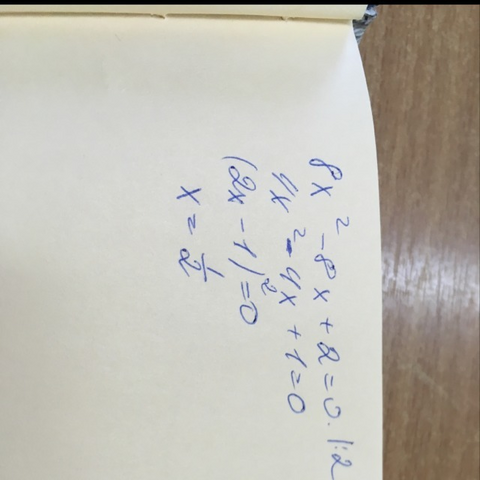 8x² - 8x + 2 = 0. |:2
4x² - 4x + 1 = 0
(2x - 1)² = 0
x = 1/2